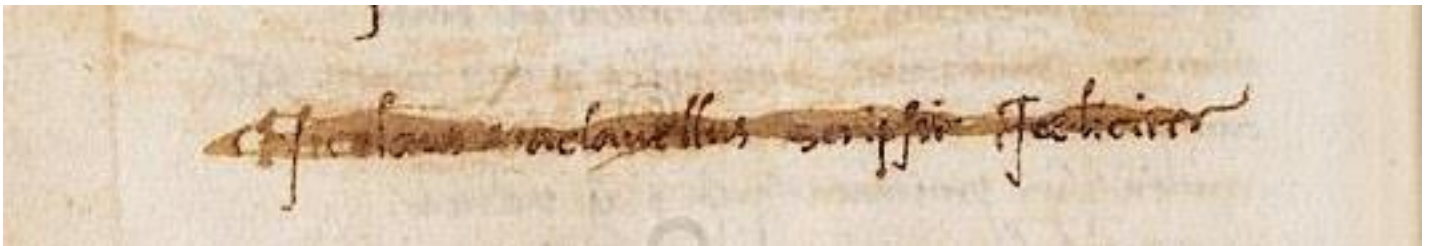 Nicolaus maclavellus scripsit Feeliciter